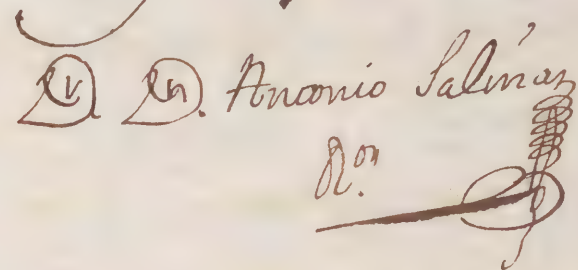 Dr. Dn. Antonio Salinas
Ron